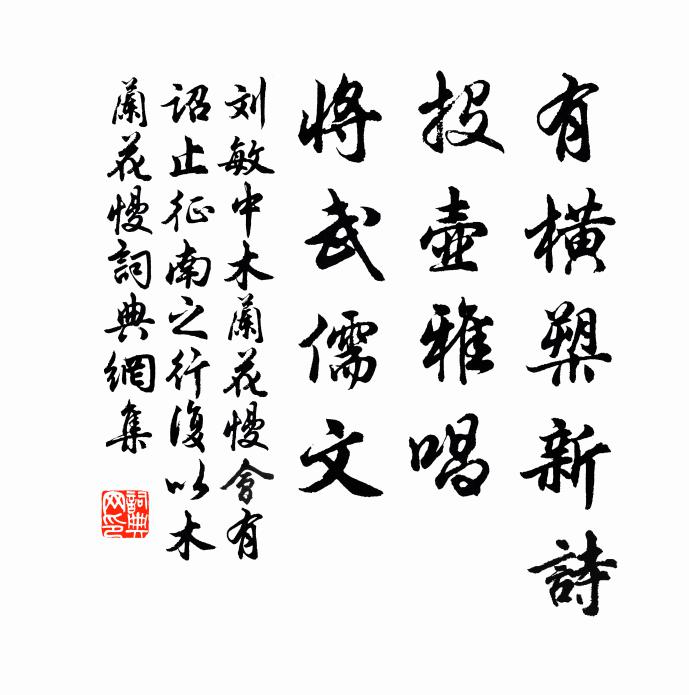 有橫槊新詩
投壺雅唱
將武儒文
刘敏中木蘭花慢會有
詔止征南之行復以木
蘭花慢詞典網集
詞典
网印